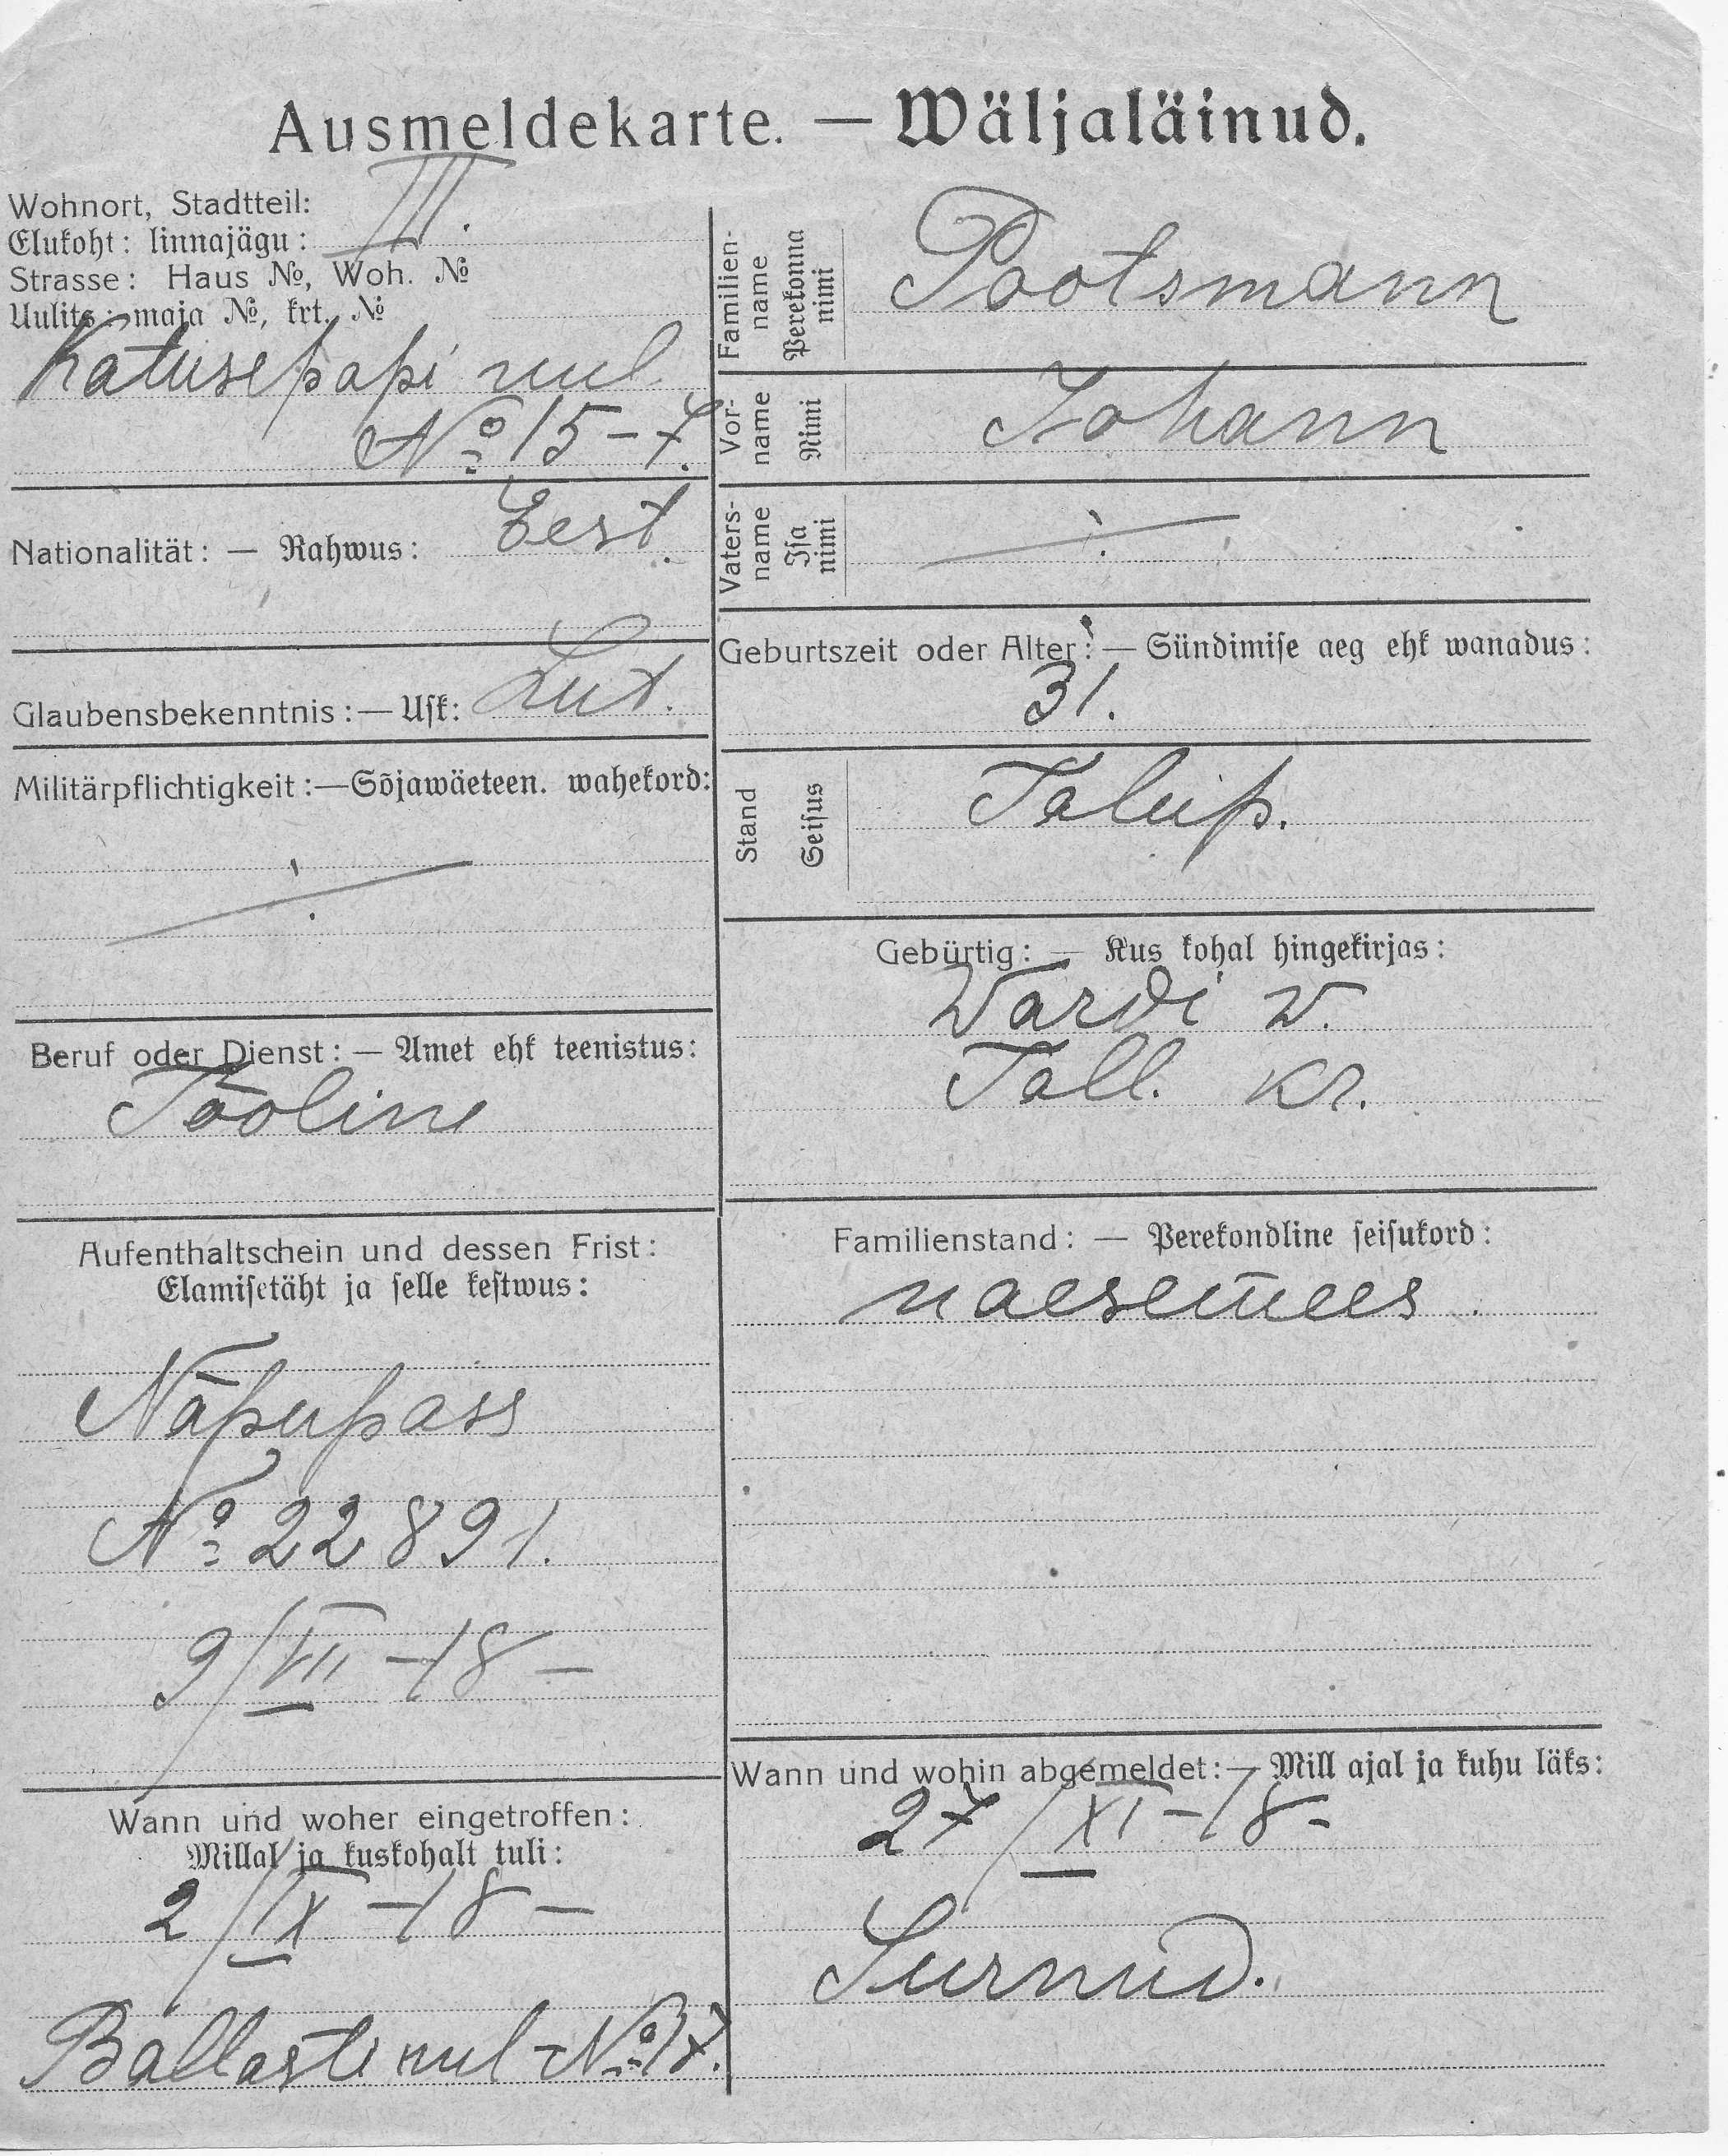 Ausmeldekarte. — Wäljaläinud.
Wohnort, Stadtteil:
Elukoht: linnajägu: III.
Strasse: Haus №, Woh. №
Uulits: maja №, krt. №
Katusepapi uul
№ 15-7.
Nationalität: — Rahwus: Eest.
Glaubensbekenntnis: — Usk: Lut.
Militärpflichtigkeit: — Sõjawäeteen. wahekord:
Beruf oder Dienst: — Amet ehk teenistus:
Tööline
Aufenthaltschein und dessen Frist:
Elamisetäht ja selle kestwus:
Näpupass
№ 22891.
9/VII -18 —
Wann und woher eingetroffen:
Millal ja kuskohalt tuli:
2/IX -18 —
Ballasti uul № 17.
Familien-
name
Perekonna
nimi
Pootsmann
Vor-
name
Nimi
Johann
Vaters-
name
Isa
nimi
Geburtszeit oder Alter: — Sündimise aeg ehk wanadus:
31.
Stand
Seisus
Talup.
Gebürtig: — Kus kohal hingekirjas:
Wardi w.
Tall. kr.
Familienstand: — Perekondline seisukord:
naesemees.
Wann und wohin abgemeldet: — Mill ajal ja kuhu läks:
27/XI -18-
Surnud.